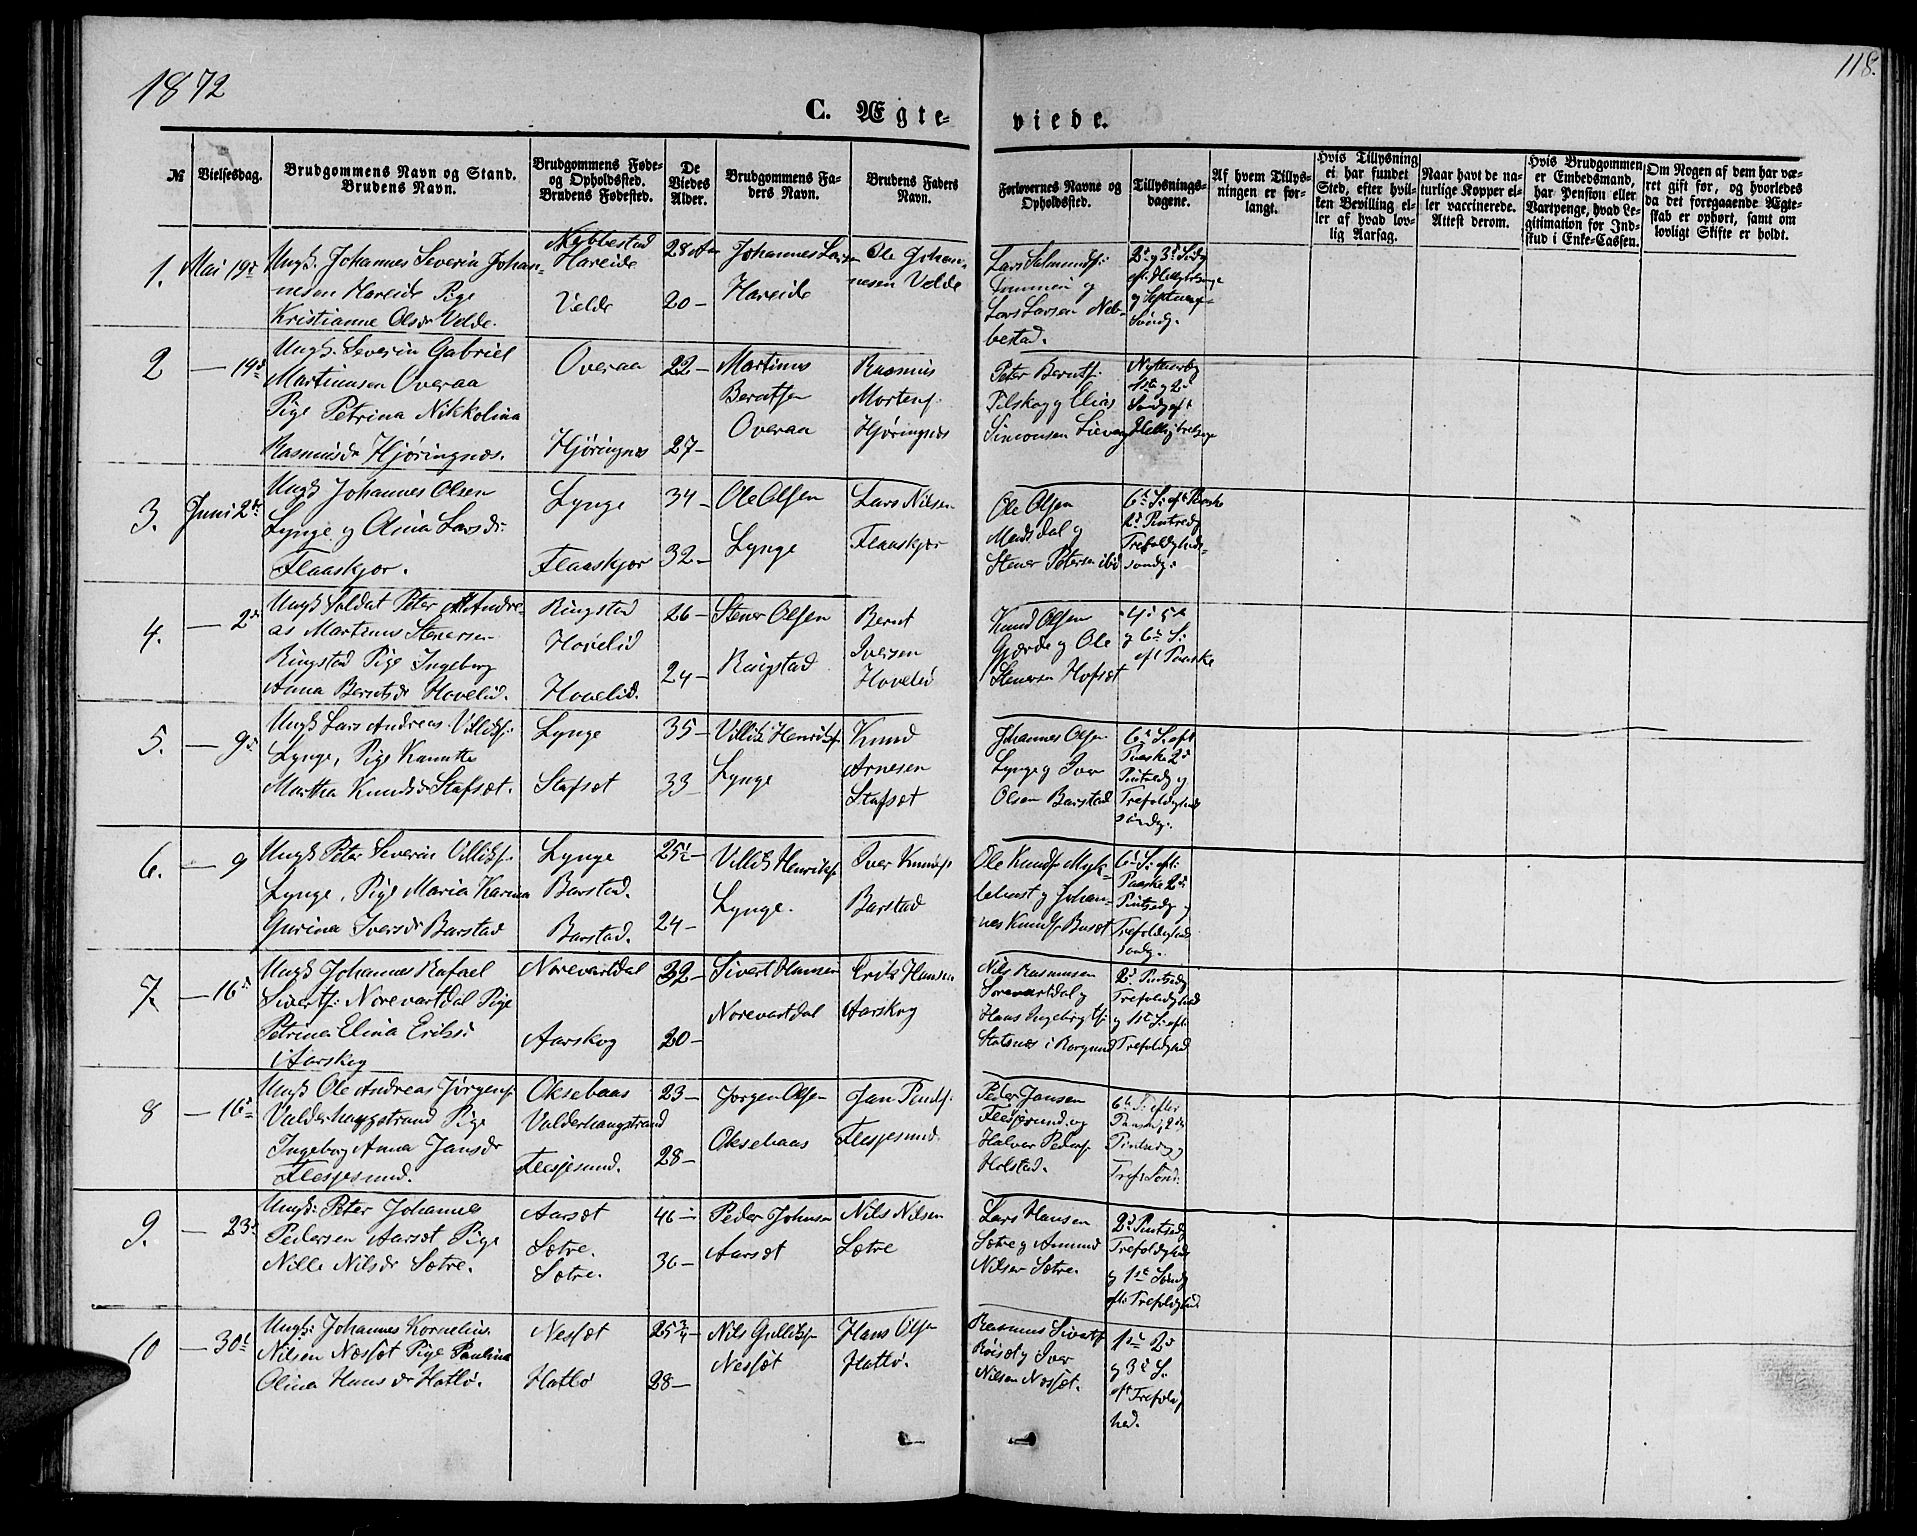 1872
118.
C. Ægte-
viede.
№
Vielsesdag.
Brudgommens Navn og Stand.
Brudens Navn.
Brudgommens Føde-
og Opholdssted.
Brudens Fødested.
De
Viedes
Alder.
Brudgommens Fa-
ders Navn.
Brudens Faders
Navn.
Forlovernes Navne og
Opholdssted.
Tillysnings-
dagene.
Af hvem Tillys-
ningen er for-
langt.
Hvis Tillysning
ei har fundet
Sted, efter hvil-
ken Bevilling el-
ler af hvad lov-
lig Aarsag.
Naar havt de na-
turlige Kopper el-
ler vaccinerede.
Attest derom.
Hvis Brudgommen
er Embedsmand,
har Pension eller
Vartpenge, hvad Le-
gitimation for Ind-
skud i Enke-Cassen.
Om Nogen af dem har væ-
ret gift før, og hvorledes
da det foregaaende Ægte-
skab er ophørt, samt om
lovligt Skifte er holdt.
1. Mai 19de
Ungk. Johannes Severin Johan-
nesen Hareide Pige
Kristianne Olsdr Velde.
Hareide
Velde
28 Aar
20 —
Johannes Larsen
Hareide
Ole Johan-
nesen Velde
Lars
og
Lars Larsen Neb-
bestad.
2d og 3d Søndg
og
Søndg.
2 — 19d
Ungk. Severin Gabriel
Martinusen Overaa
Pige Petrina Nikkolina
Rasmusdr Hjøringnes.
Overaa
Hjøringnes
22 —
27 —
Martinus
Berntsen
Overaa
Rasmus
Mortens.
Hjøringnes
Peter Berntsf.
Tilskog og Elias
Simonsen
1ste og 2d
Søndg eft
3. Juni 2de
Ungk Johannes Olsen
Lynge og Olina Larsd:
Flaaskjør.
Lynge
Flaaskjør
34 —
32 —
Ole Olsen
Lynge
Lars Nilsen
Flaaskjør
Ole Olsen
dal og
Stener Petersen ibid
6te S: eft Paaske
2d Pintsedg
Trefoldigheds-
søndg.
4. — 2d
Ungk Soldat Peter Andre-
as Martinus Stenersen
Ringstad Pige Ingeborg
Anna Berntsdr Hovelid.
Ringstad
Hovelid
Hovelid.
26 —
24 —
Stener Olsen
Ringstad
Bernt
Iversen
Hovelid
Knud Olsen
Gjerde og Ole
Stenersen Hofsæt
4d 5te
og 6te S:
eft Paaske
5. — 9d
Ungk Lars Andreas Villiksf.
Lynge, Pige Kanutte
Martha Knudsdr Stafsæt.
Lynge
Stafsæt
35 —
33 —
Villik Henriksf.
Lynge
Knud
Arnesen
Stafsæt
Johannes Olsen
Lynge og Iver
Olsen Barstad
6te S. eft
Paaske 2d
Pintsedg og
Trefoldigheds
søndg.
6. — 9
Ungk Peter Severin Villiksf.
Lynge, Pige Maria Karina
Gurina Iversdr Barstad
Lynge
Barstad.
Barstad.
25½
24 —
Villik Henriksf.
Lynge.
Iver Knudsf
Barstad
Ole Knudsf Myk-
lebust og Johan-
nes Knudsf Buset
6te S: eft:
Paaske 2d
Pintsedg og
Trefoldigheds
søndg.
7. — 16d
Ungk Johannes Rafael
Sivertsf. Norevartdal Pige
Petrina Elina Eriksd:
Aarskog
Norevartdal
Aarskog
32 —
20 —
Sivert Hansen
Norevartdal
Erik Hansen
Aarskog
Nils Rasmusen
Sørevartdal og
Hans Ingebrigtsf.
Statsnes i Borgund
2d Pintsedg
Trefoldighed
og 1ste S: eft.
Trefoldighed
8 — 16d
Ungk Ole Andreas Jørgensf.
Valderhaugstrand Pige
Ingeborg Anna Jansdr
Flesjesund.
Oksebaas
Valderhaugstrand
Flesjesund.
23 —
28 —
Jørgen Olsen
Oksebaas
Jan
Flesjesund.
Peder Jansen
Flesjesund og
Halvor Pedersf.
Holstad.
6te S: efter
Paaske, 2d
Pintsedg og
Tref: Sønd:
9. — 23d
Ungk: Peter Johannes
Pedersen Aarsæt Pige
Nille Nilsdr Sætre.
Aarsæt
Sætre.
Sætre.
46 —
36 —
Peder Johnsen
Aarsæt
Nils Nilsen
Sætre
Lars Hansen
Sætre og Amund
Nilsen Sætre.
2d Pintsedg
Trefoldigheds
og 1ste Søndg
eft: Trefoldighed.
10 — 30te
Ungk: Johannes Kornelius
Nilsen Næssæt Pige Paulina
Olina Hansdr Hatlø.
Nessæt
Hatlø
25¾ —
28 —
Nils Gulliksf
Nessæt
Hans Olsen
Hatlø.
Rasmus Sivertsf
Røiset og Iver
Nilsen Nessæt.
1ste 2d
og 3d S.
eft Trefoldig-
hed.